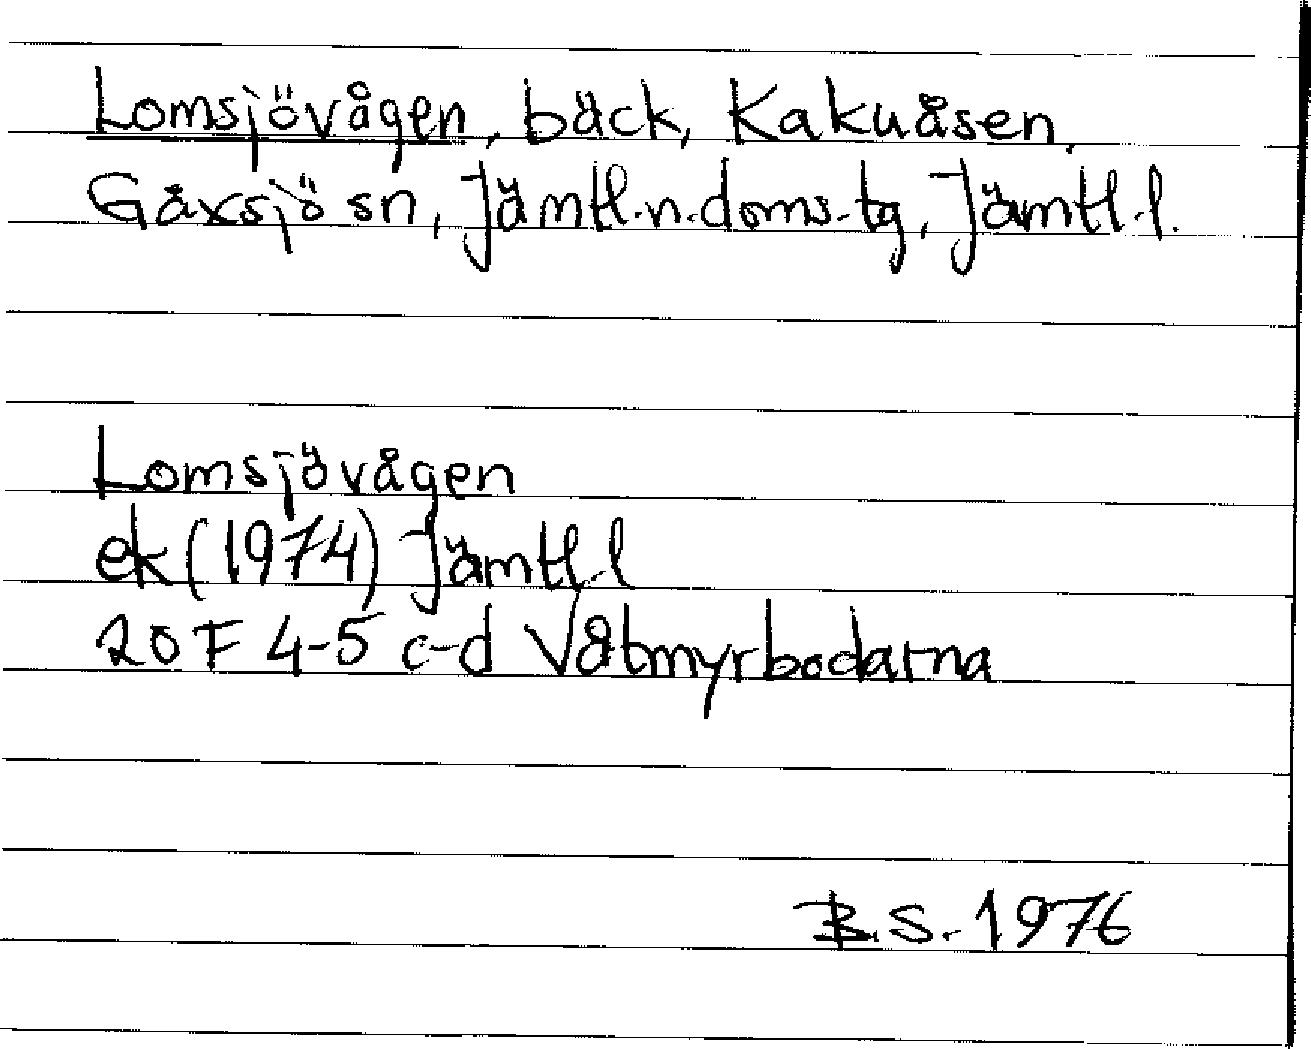 Lomsjövågen, bäck, Kakuåsen,
Gåxsjö sn, Jämtl.n.doms.tg, Jämtl.l.
Lomsjövågen
ek (1974) Jämtl.l
20 F 4-5 c-d Våtmyrbodarna
B.S. 1976